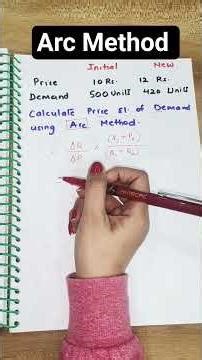 Arc Method
Initial New
Price 10 Rs. 12 Rs.
Demand 500 Units 420 Units
Calculate Price El. of Demand
using Arc Method.
ΔQ × (P₁ + P₂)
ΔP (Q₁ + Q₂)